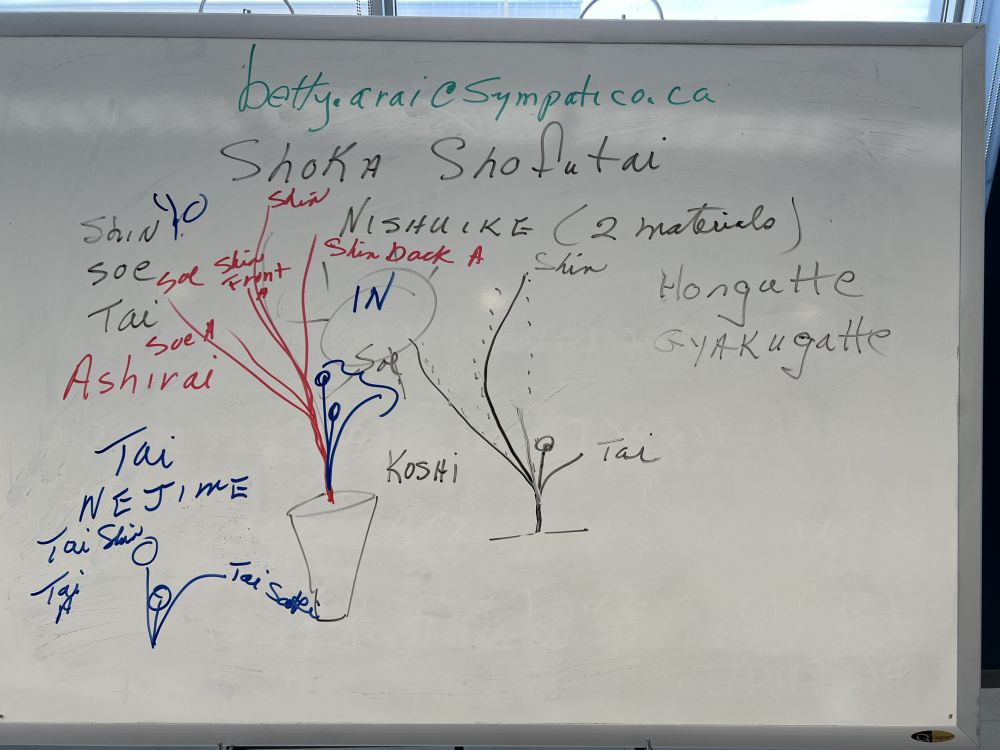 betty.arai@sympatico.ca
SHOKA Shofutai
Shin YO
Shin
NISHUIKE (2 materials)
Soe
Soe
Shin Front A
Shin Back A
Shin
Hongatte
Tai
IN
GYAKUgatte
Soe A
Soe
Ashirai
Tai
KOSHi
Tai
NEJIME
Tai Shin
Tai A
Tai